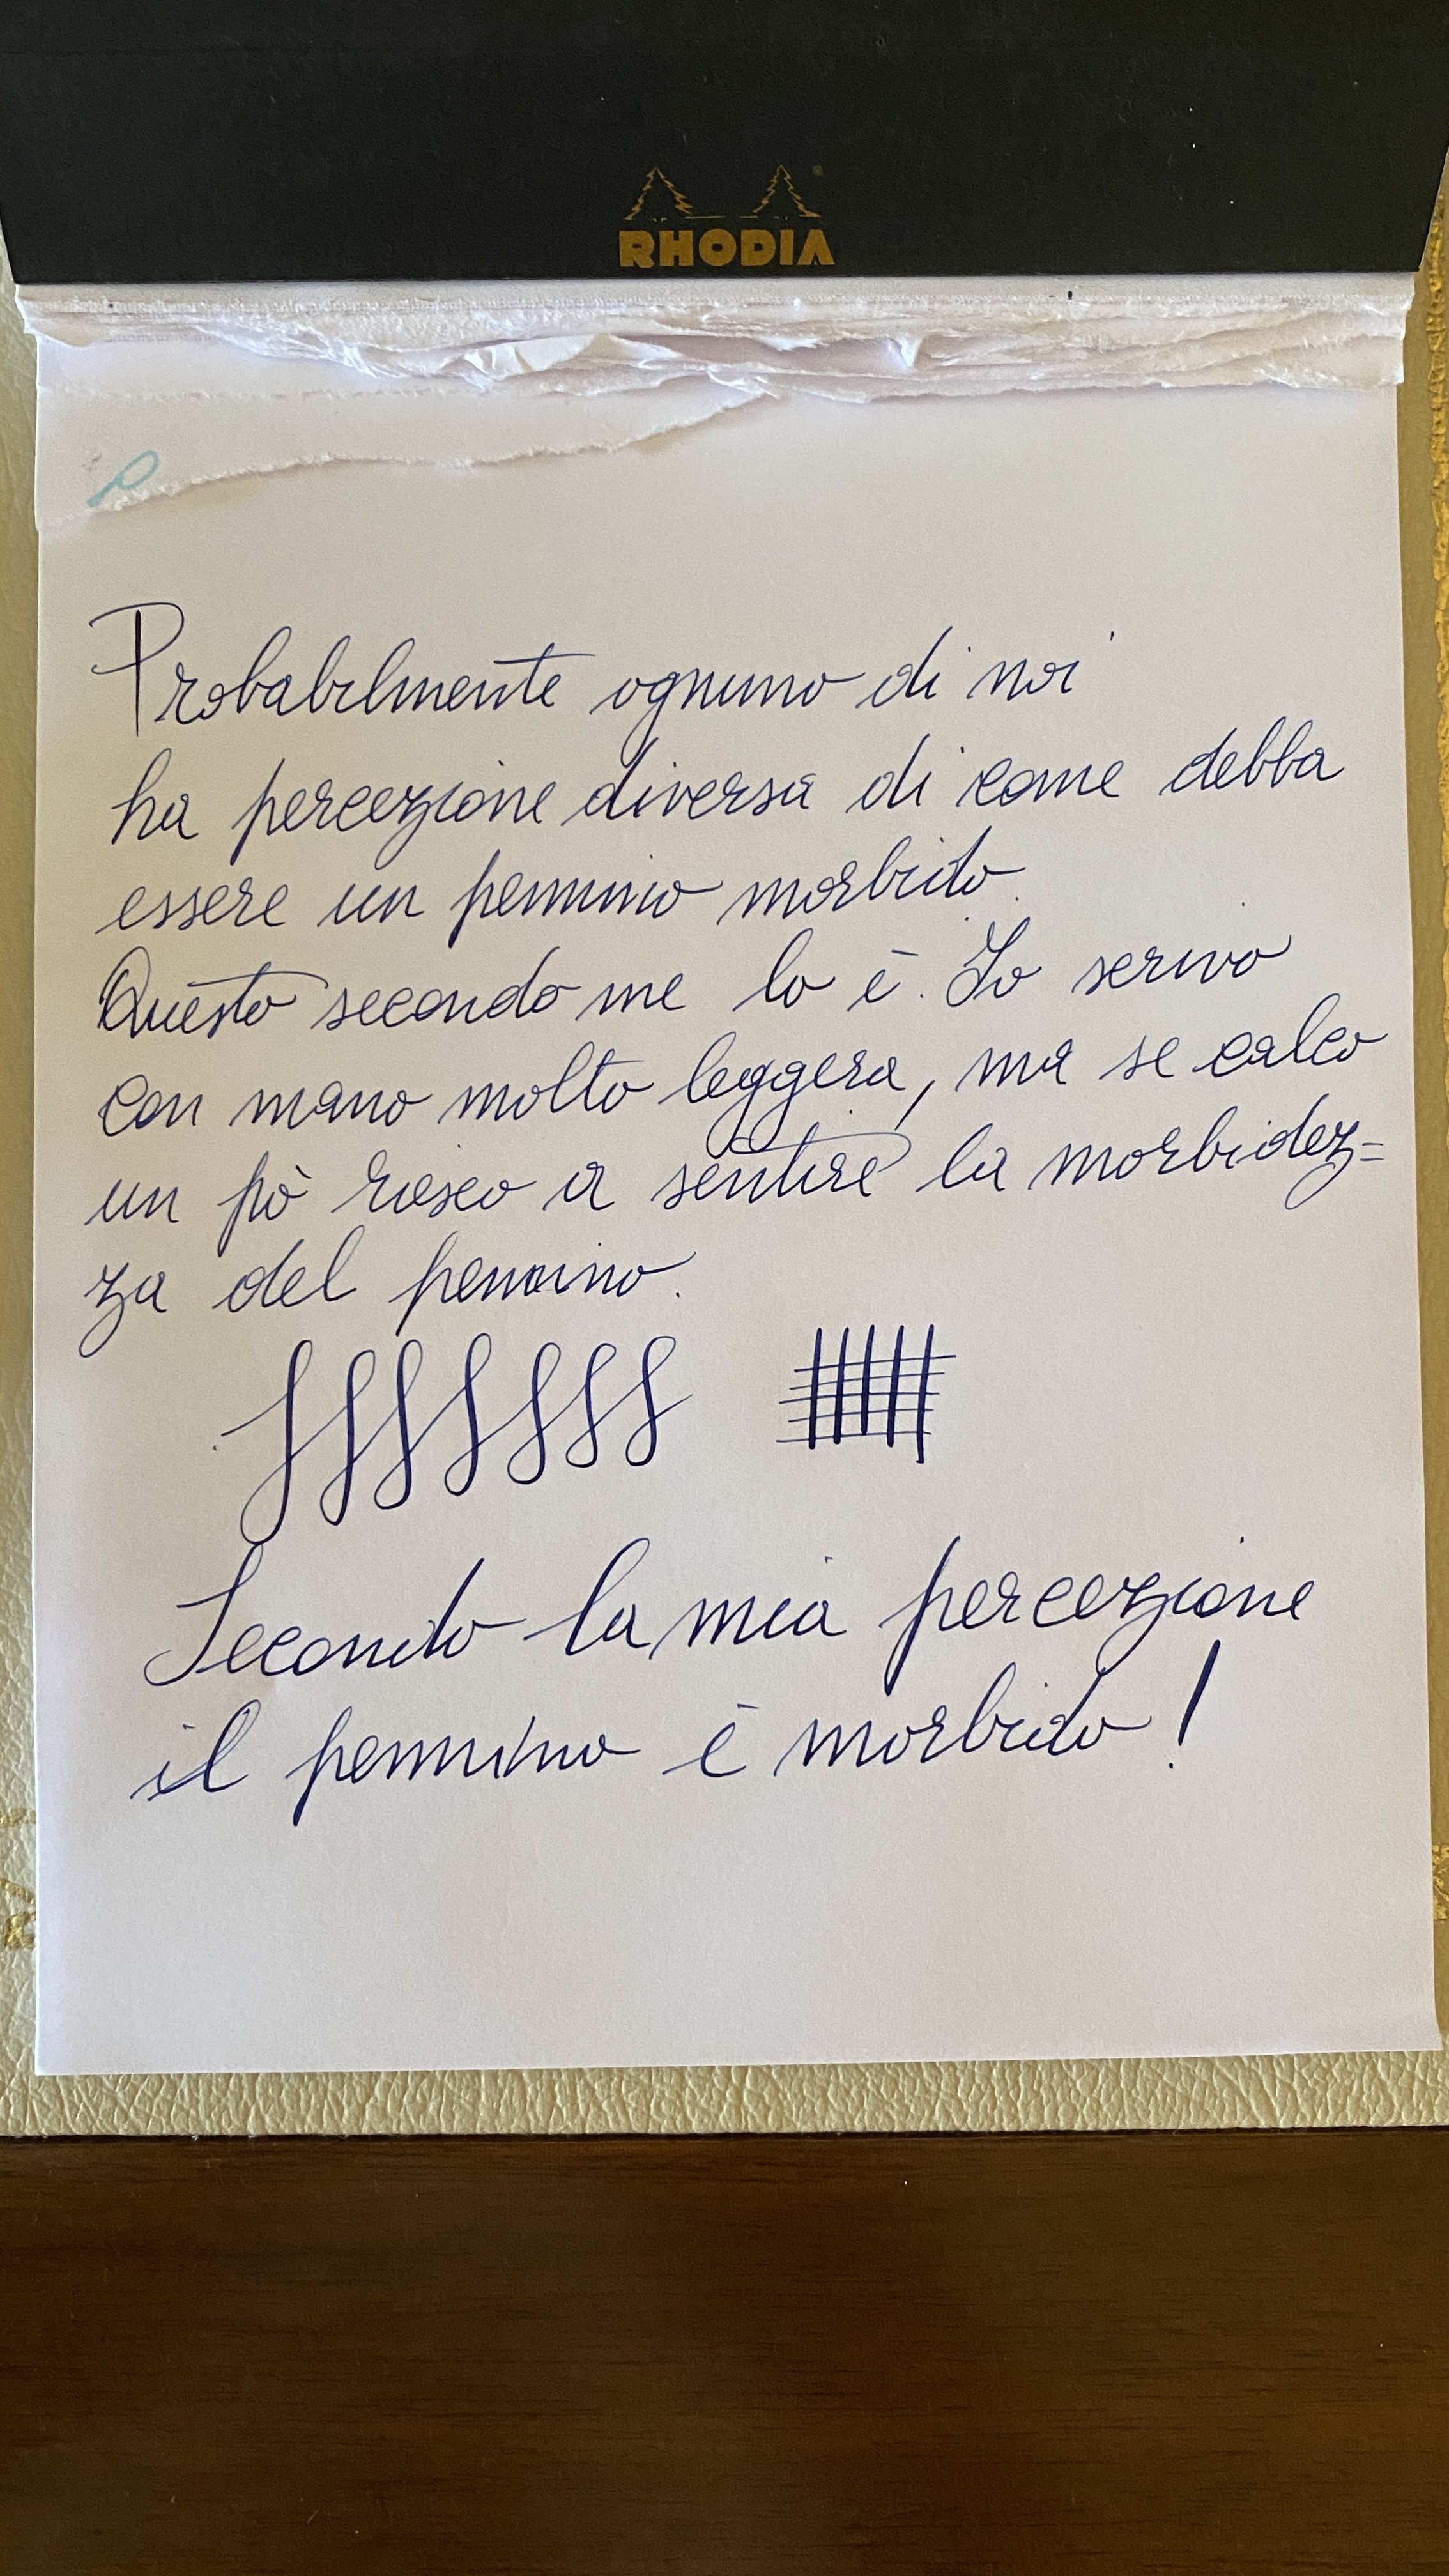 RHODIA
Probabilmente ognuno di noi
ha percezione diversa di come debba
essere un pennino morbido.
Questo secondo me lo è. Io scrivo
con mano molto leggera, ma se calco
un pò riesco a sentire la morbidez=
za del pennino.
Secondo la mia percezione
il pennino è morbido!